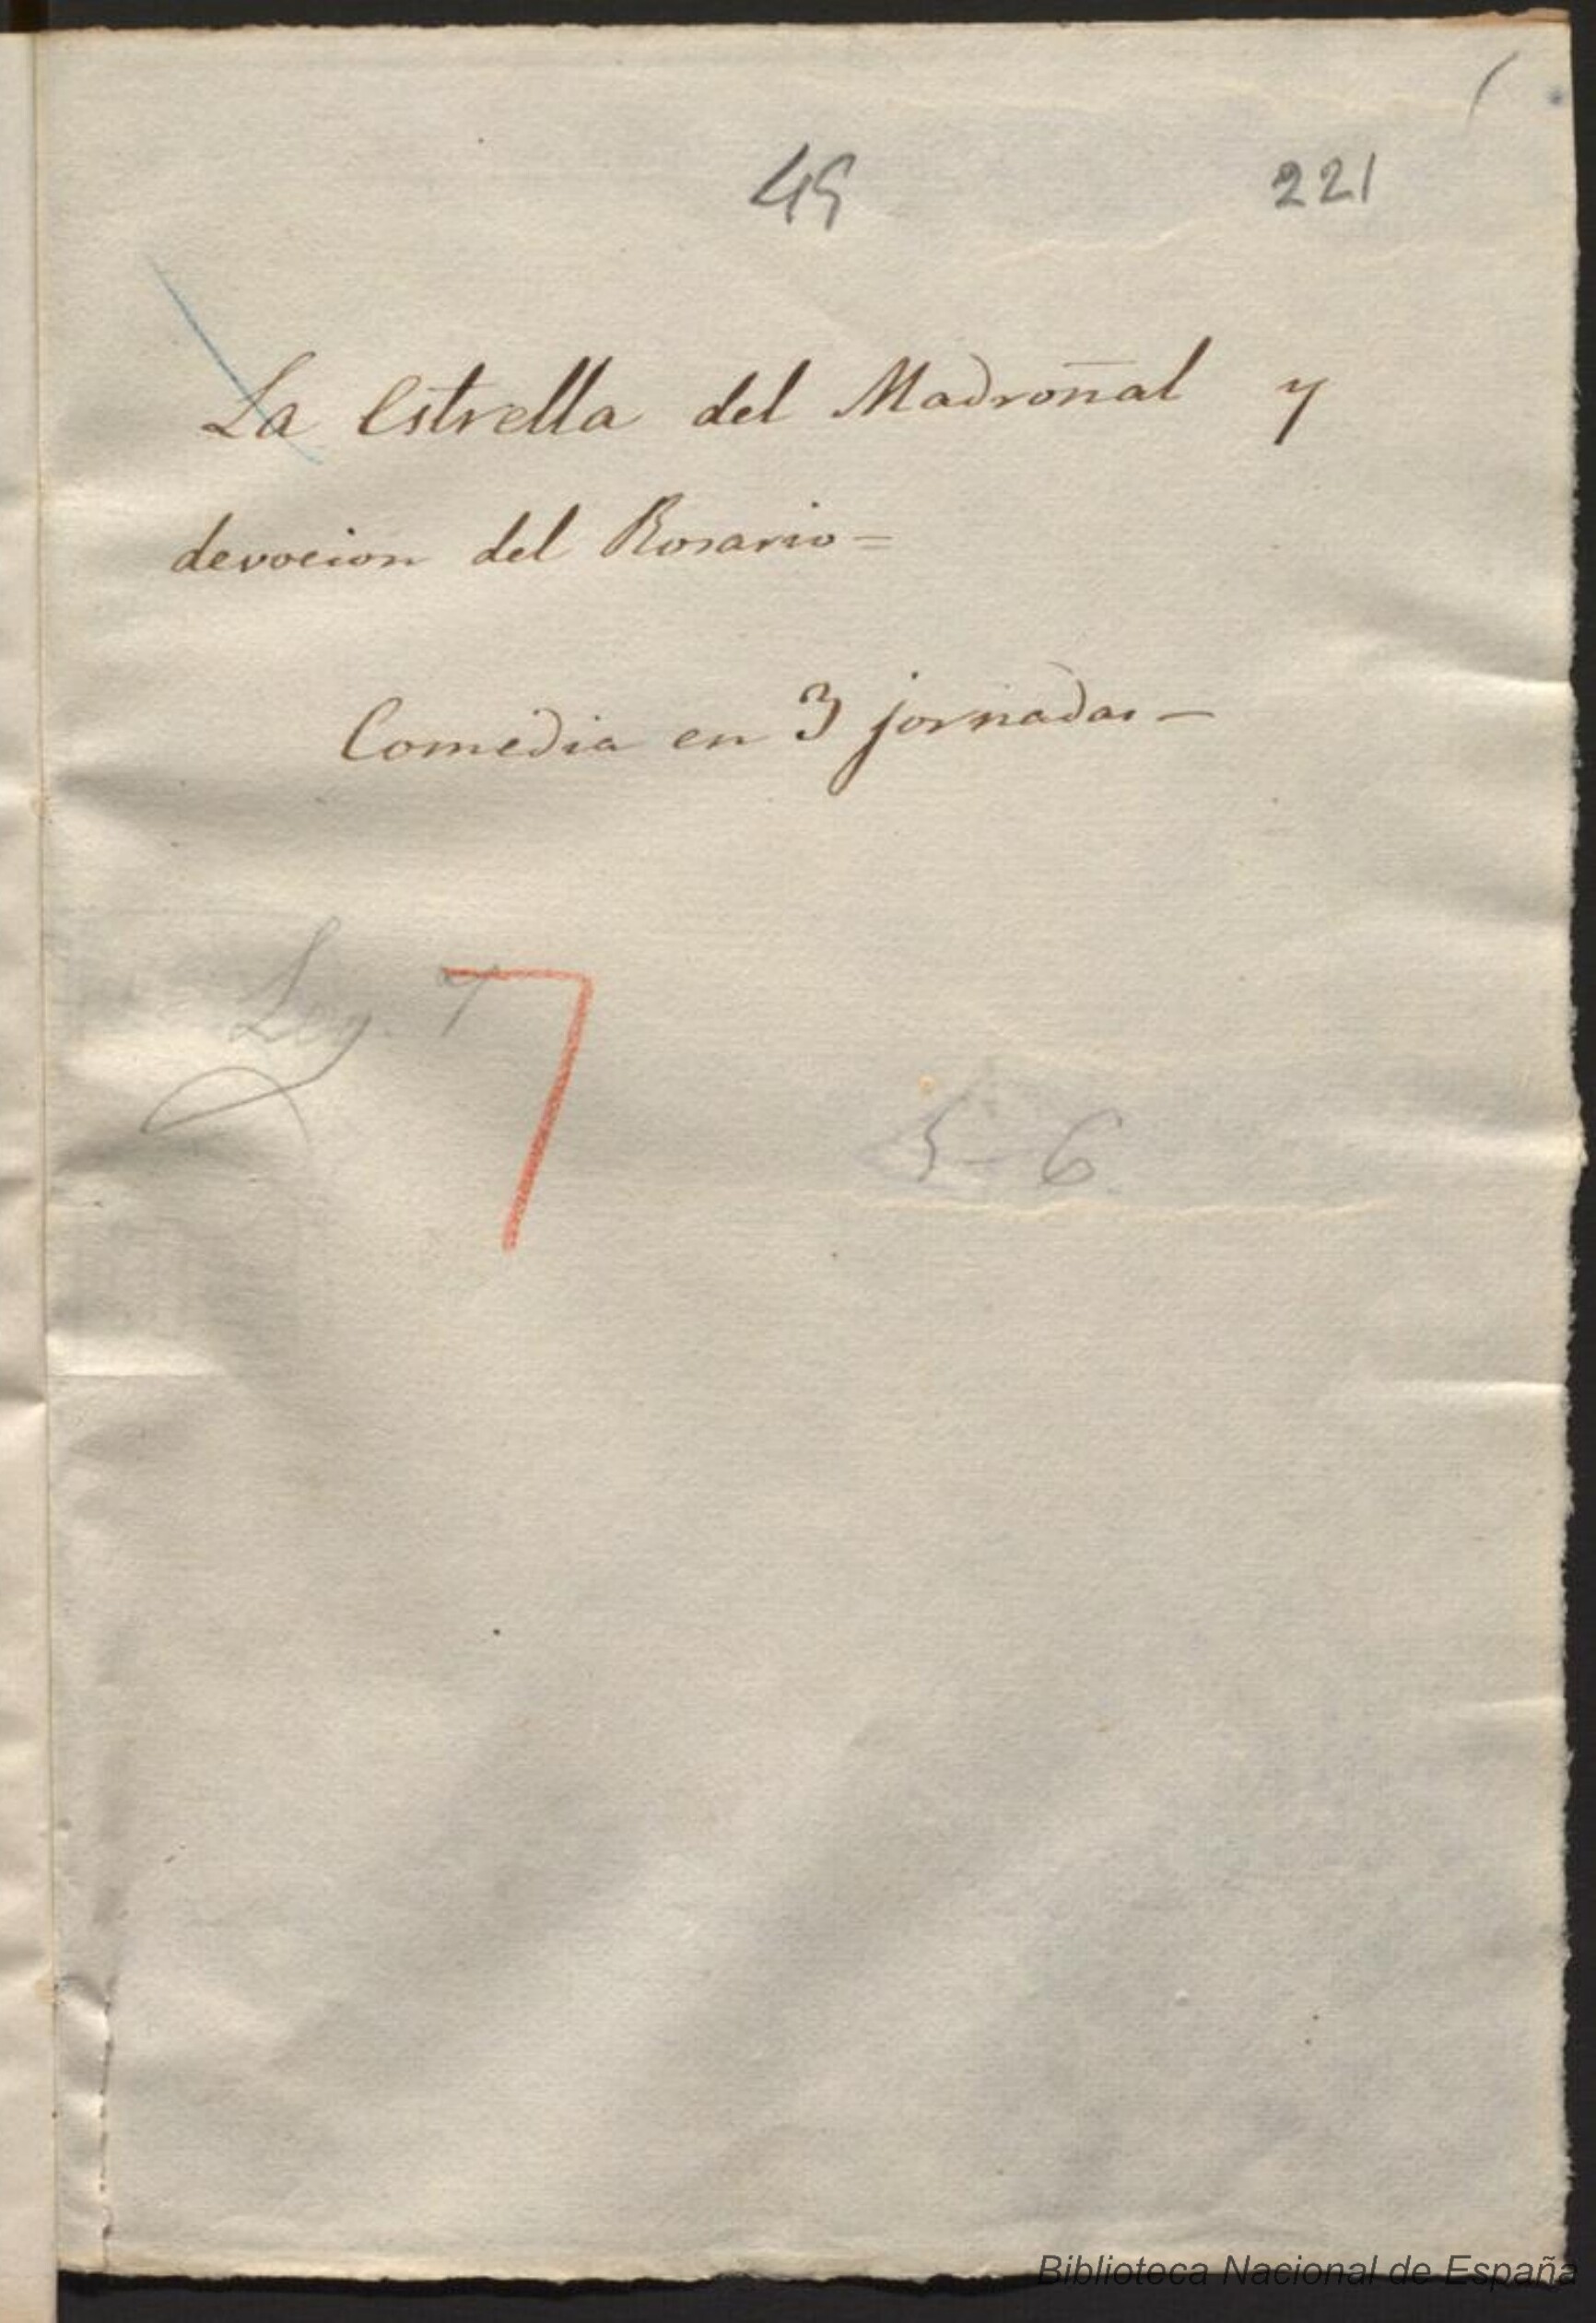 49 221
La Estrella del Madroñal y
devocion del Rosario=
Comedia en 3 jornadas—
Leg. 7
7
5-6
Biblioteca Nacional de España